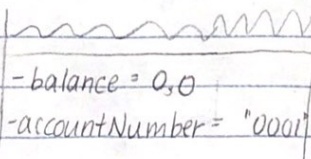 -balance = 0,0
-accountNumber = "0001"